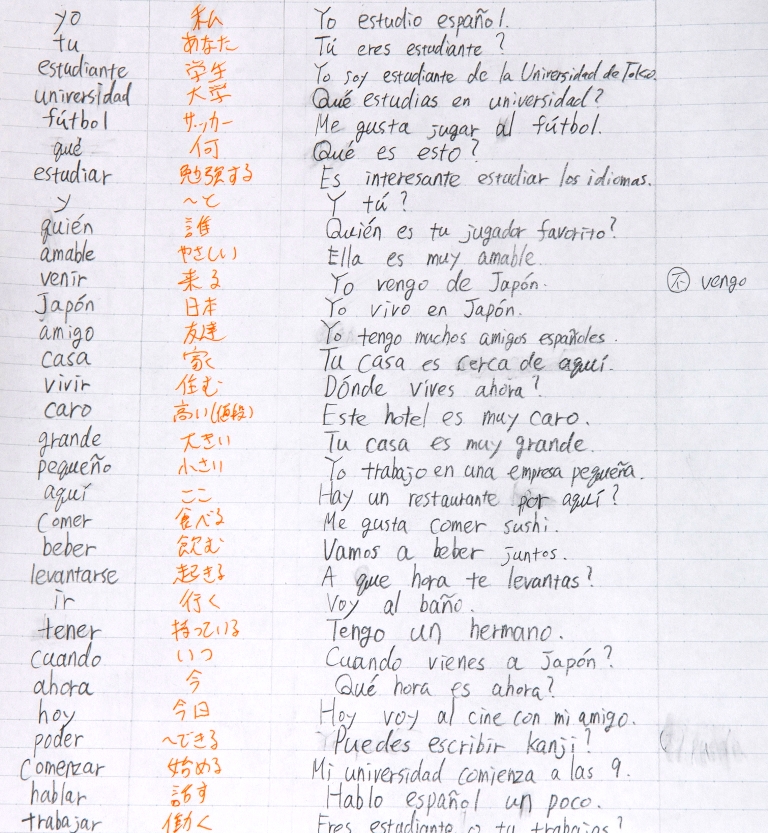 yo 私 Yo estudio español.
tu あなた Tú eres estudiante?
estudiante 学生 Yo soy estudiante de la Universidad de Tokco.
universidad 大学 Qué estudias en universidad?
fútbol サッカー Me gusta jugar al fútbol.
qué 何 Qué es esto?
estudiar 勉強する Es interesante estudiar los idiomas.
y ~と Y tú?
quién 誰 Quién es tu jugador favorito?
amable やさしい Ella es muy amable.
venir 来る Yo vengo de Japón. 不 vengo
Japón 日本 Yo vivo en Japón.
amigo 友達 Yo tengo muchos amigos españoles.
casa 家 Tu casa es cerca de aquí.
vivir 住む Dónde vives ahora?
caro 高い(値段) Este hotel es muy caro.
grande 大きい Tu casa es muy grande.
pequeño 小さい Yo trabajo en una empresa pequeña.
aquí ここ Hay un restaurante por aquí?
comer 食べる Me gusta comer sushi.
beber 飲む Vamos a beber juntos.
levantarse 起きる A que hora te levantas?
ir 行く Voy al baño.
tener 持っている Tengo un hermano.
cuando いつ Cuando vienes a Japón?
ahora 今 Qué hora es ahora?
hoy 今日 Hoy voy al cine con mi amigo.
poder ~できる Puedes escribir kanji?
comenzar 始める Mi universidad comienza a las 9.
hablar 話す Hablo español un poco.
trabajar 働く Eres estudiante o tu trabajas?